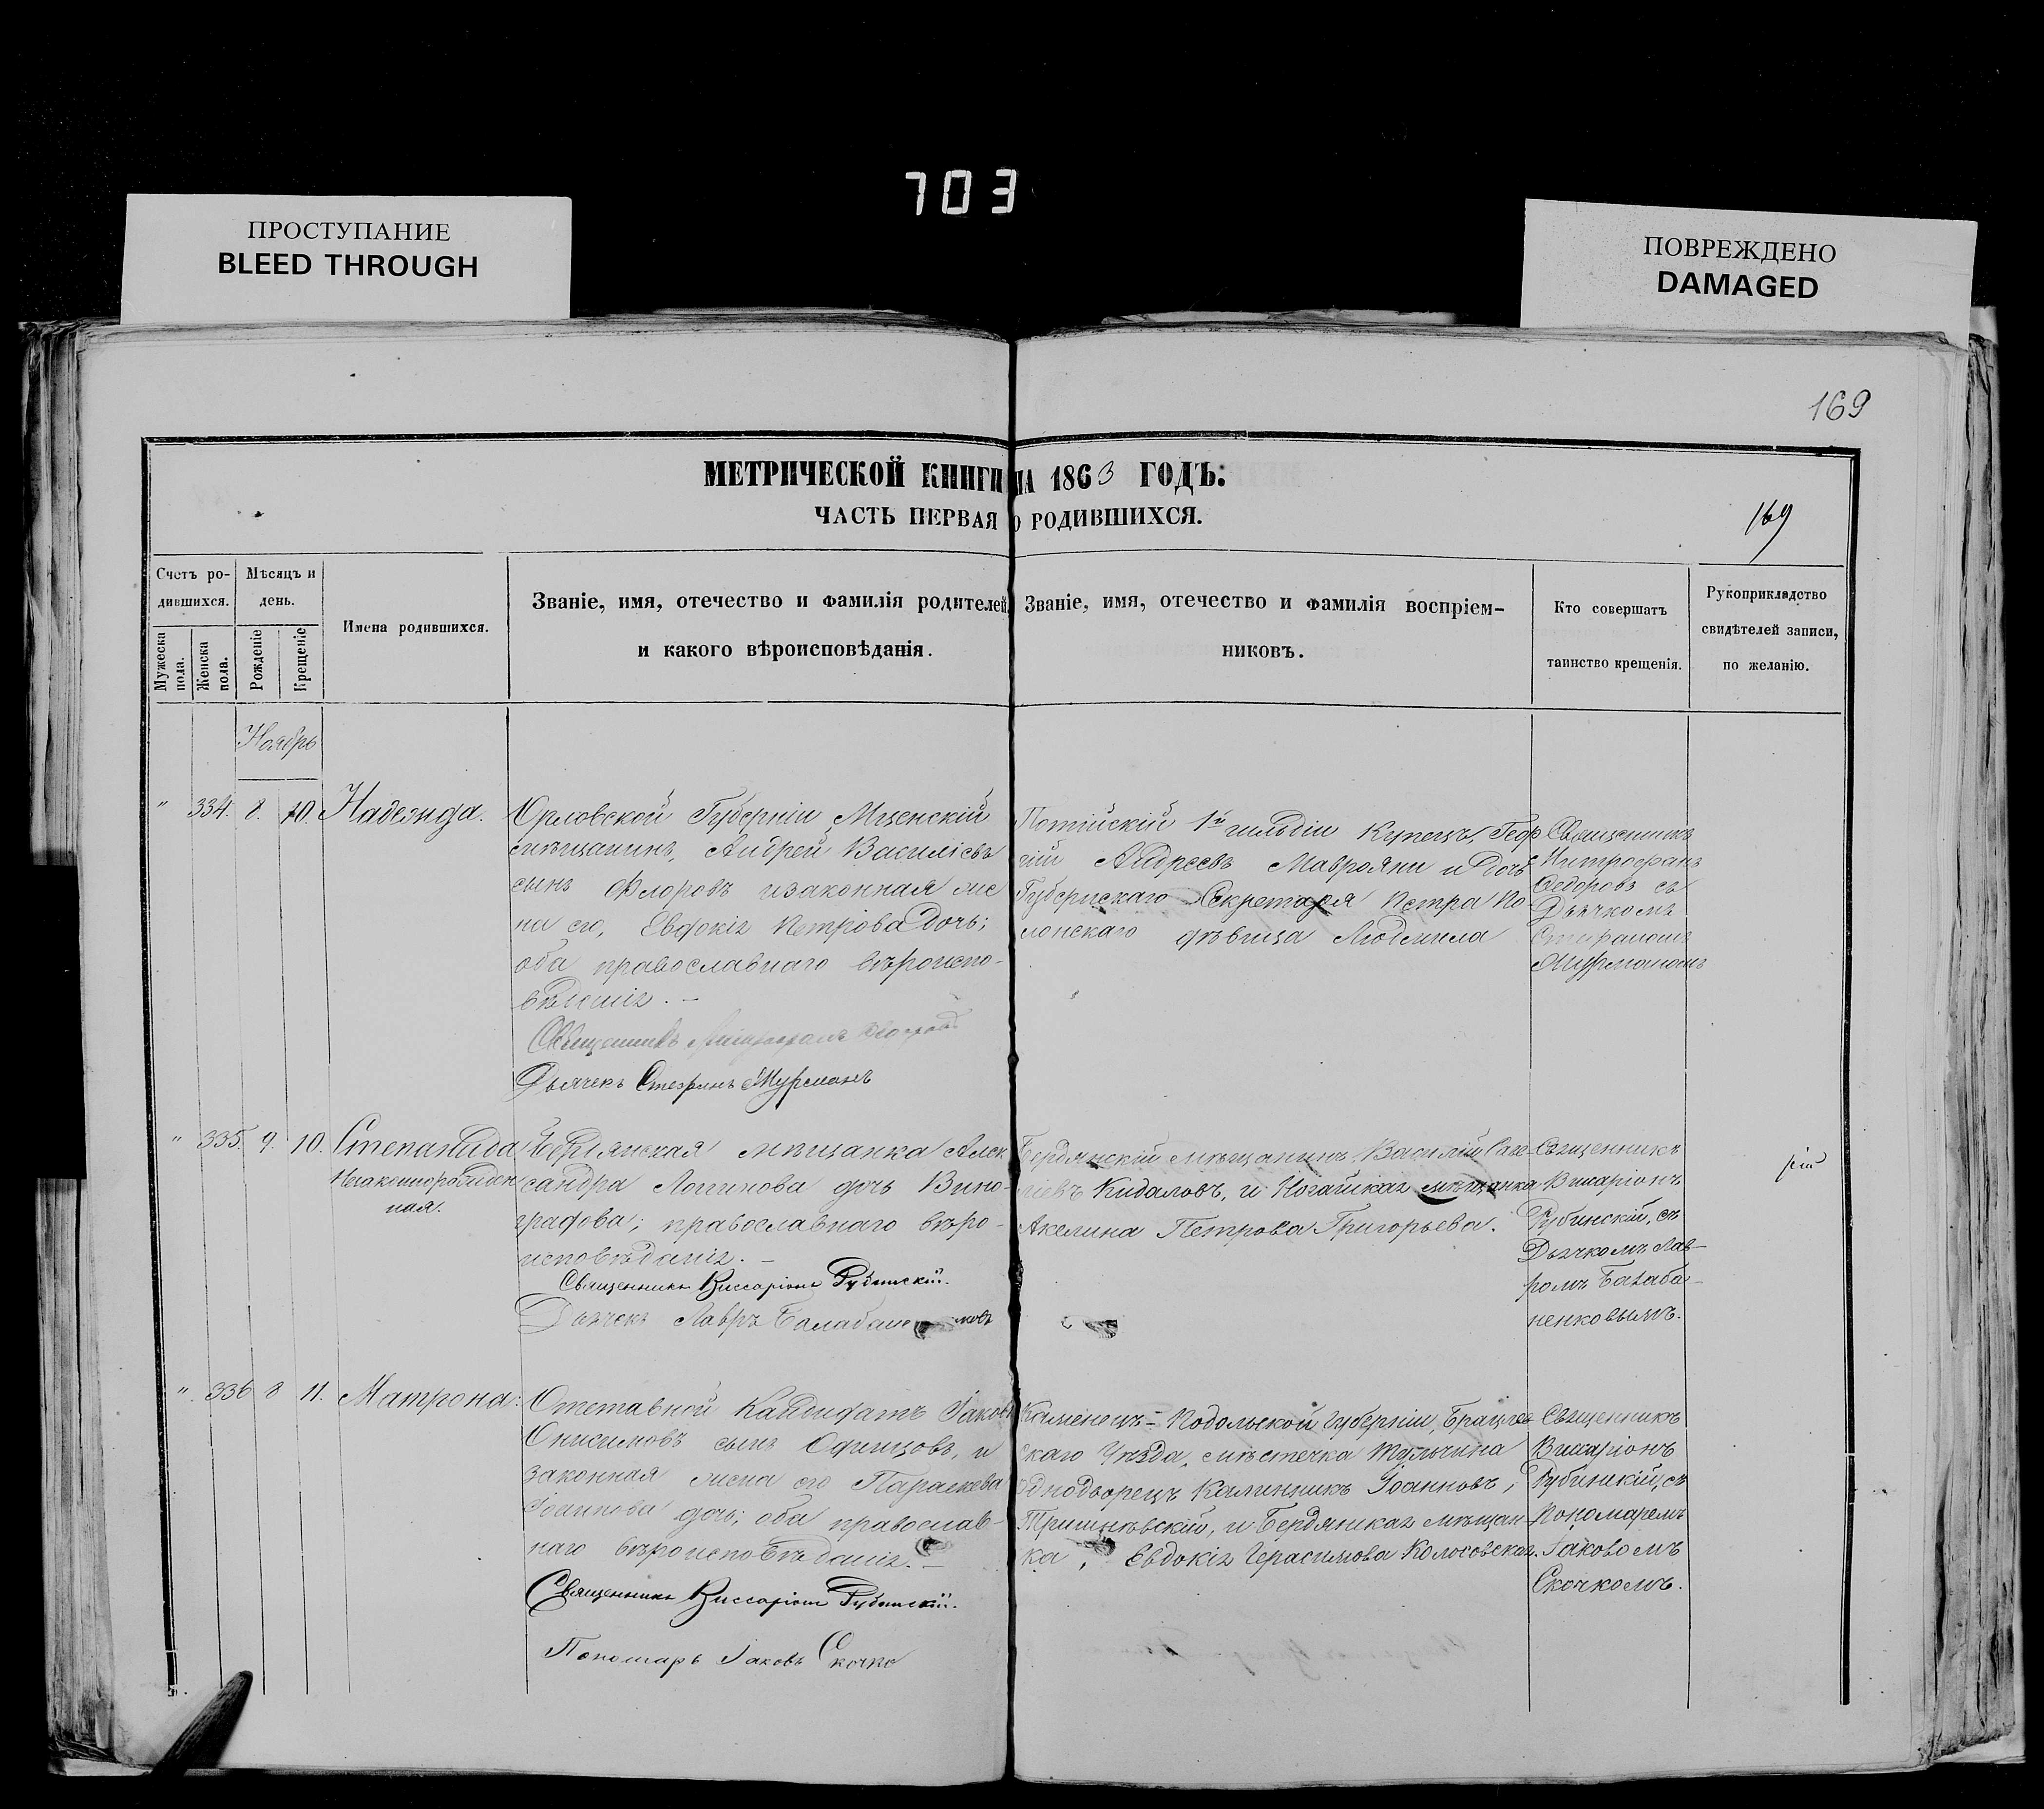 703
ПРОСТУПАНИЕ
BLEED THROUGH
ПОВРЕЖДЕНО
DAMAGED
169
МЕТРИЧЕСКОЙ КНИГИ НА 1863 ГОДЪ.
ЧАСТЬ ПЕРВАЯ О РОДИВШИХСЯ.
169
Счетъ ро-
дившихся.
Мужеска пола.
Женска пола.
Мѣсяцъ и
день.
Рожденіе
Крещеніе
Имена родившихся.
Званіе, имя, отечество и фамилія родителей
и какого вѣроисповѣданія.
Званіе, имя, отечество и фамилія воспріем-
никовъ.
Кто совершатъ
таинство крещенія.
Рукоприкладство
свидѣтелей записи,
по желанію.
Ноябрь
" 334. 8. 10. Надежда.
Орловской Губерніи Мценскій
мѣщанинъ, Андрей Василіевъ
сынъ Флоровъ изаконная же
на его, Евдокія Петрова Дочь;
оба православнаго вѣроиспо-
вѣданія. —
Священникъ Митрофанъ Федоровъ
Дьячекъ Стефанъ Мурманъ
Потійскій 1й гильдіи Купецъ, Геор
гій Андреевъ Маврояни и дочь
Губернскаго Секретаря Петра По-
лонскаго дѣвица Людмила
Священникъ
Митрофанъ
Федоровъ съ
Дьячкомъ
Стефаномъ
Мурманомъ
" 335. 9. 10. Степанида
Незаконнорожден
ная.
Бердянская мѣщанка Алек
сандра Логгинова дочь Вино-
градова; православнаго вѣро-
исповѣданія. —
Священникъ Виссаріонъ Рубинскій.
Дьячекъ Лавръ
Бердянскій мѣщанинъ Василій Саве-
ліевъ Кидаловъ, и Ногайская мѣщанка
Акелина Петрова Григорьева.
Священникъ
Висаріонъ
Рубинскій, съ
Дьячкомъ Лав-
ромъ Балаба-
ненковымъ.
рій
" 336 8 11. Матрона:
Отставной Кандидатъ Іаковъ
Онисимовъ сынъ Офицовъ, и
законная жена его Параскева
Іоаннова дочь; оба православ-
наго вѣроисповѣданія. —
Священникъ Виссаріонъ Рубинскій.
Пономарь Іаковъ Скочко
Каменецъ-Подольской губерніи, Брацлав
скаго Уѣзда, мѣстечка Тульчина
однодворецъ Калинникъ Іоанновъ,
и Бердянская мѣщан-
ка, Евдокія Герасимова Колосовская.
Священникъ
Висаріонъ
Рубинскій, съ
Пономаремъ
Іаковомъ
Скочкомъ.